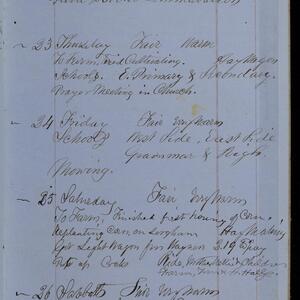 23 Thursday Fair Warm
To Farm, Tried Cultivating. Hay Wagon
Schools E. Primary & Secondary.
Prayer Meeting in Church.
24 Friday Fair very Warm
Schools West Side, East Side
Grammar & High.
Mowing.
25 Saturday Fair very Warm
To Farm, Finished first hoeing of Corn,
Replanting Corn, on Sorghum Hay Making
Got Light Wagon for Wagoner
Put up Cocks Ride, Children
26 Sabbath Fair very Warm